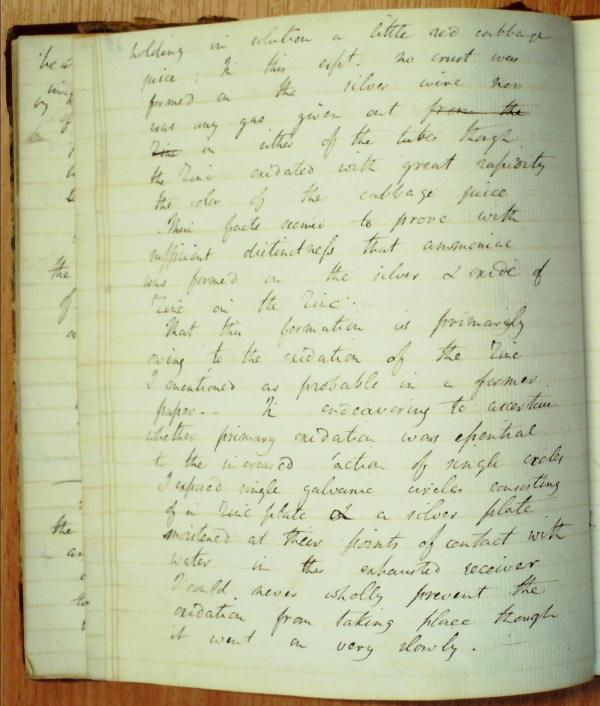 holding in solution a little red cabbage
juice; In this expt. no crust was
formed on the silver wire nor
was any gas given out from the
Zinc in either of the tubes though
the Zinc oxidated with great rapidity
the color of the cabbage juice
These facts seemed to prove with
sufficient distinctness that ammoniac
was formed on the silver & oxide of
Zinc on the Zinc.
That this formation is primarily
owing to the oxidation of the Zinc
I mentioned as probable in a former
paper. - - In endeavering to ascertain
whether primary oxidation was essential
to the increased action of single circles
I exposed single galvanic circles consisting
of a Zinc plate & a silver plate
moistened at their points of contact with
water in the exhausted receiver
I could never wholly prevent the
oxidation from taking place though
it went on very slowly. —
the
of
the